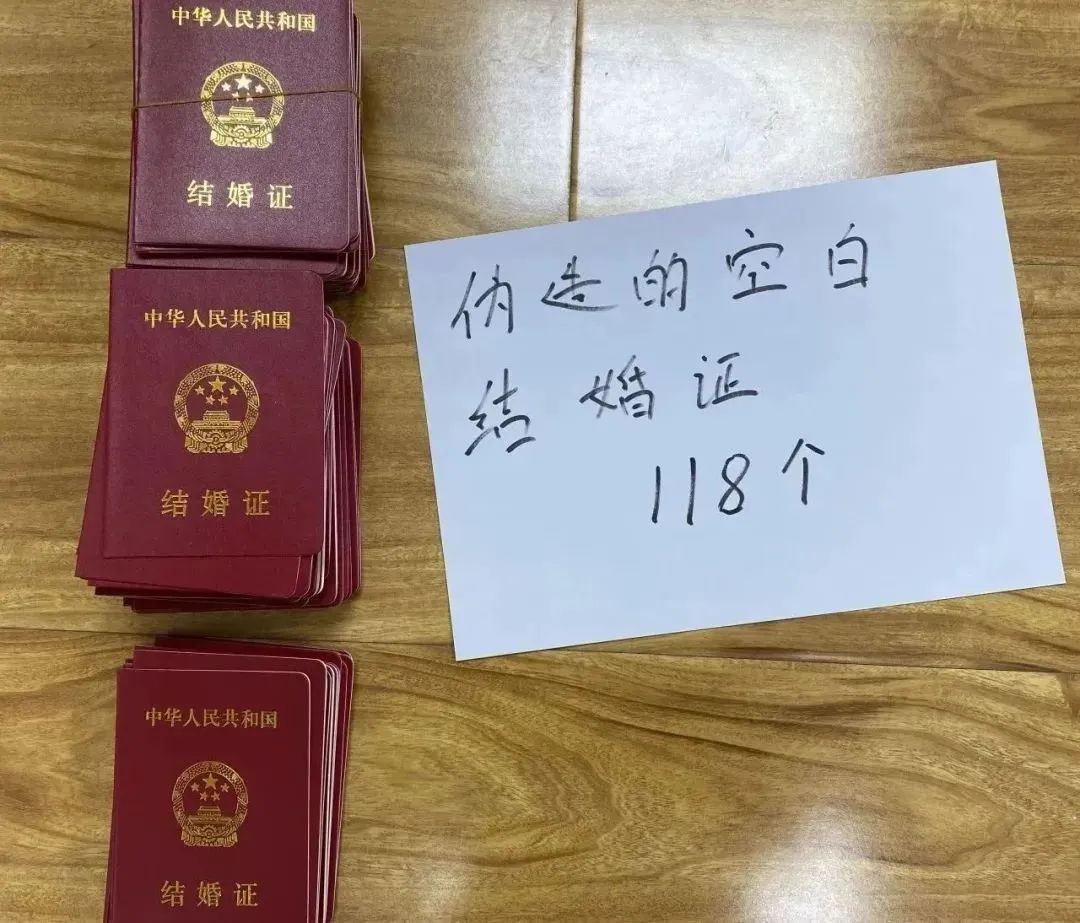 中华人民共和国
结婚证
中华人民共和国
结婚证
中华人民共和国
结婚证
伪造的空白
结婚证
118个